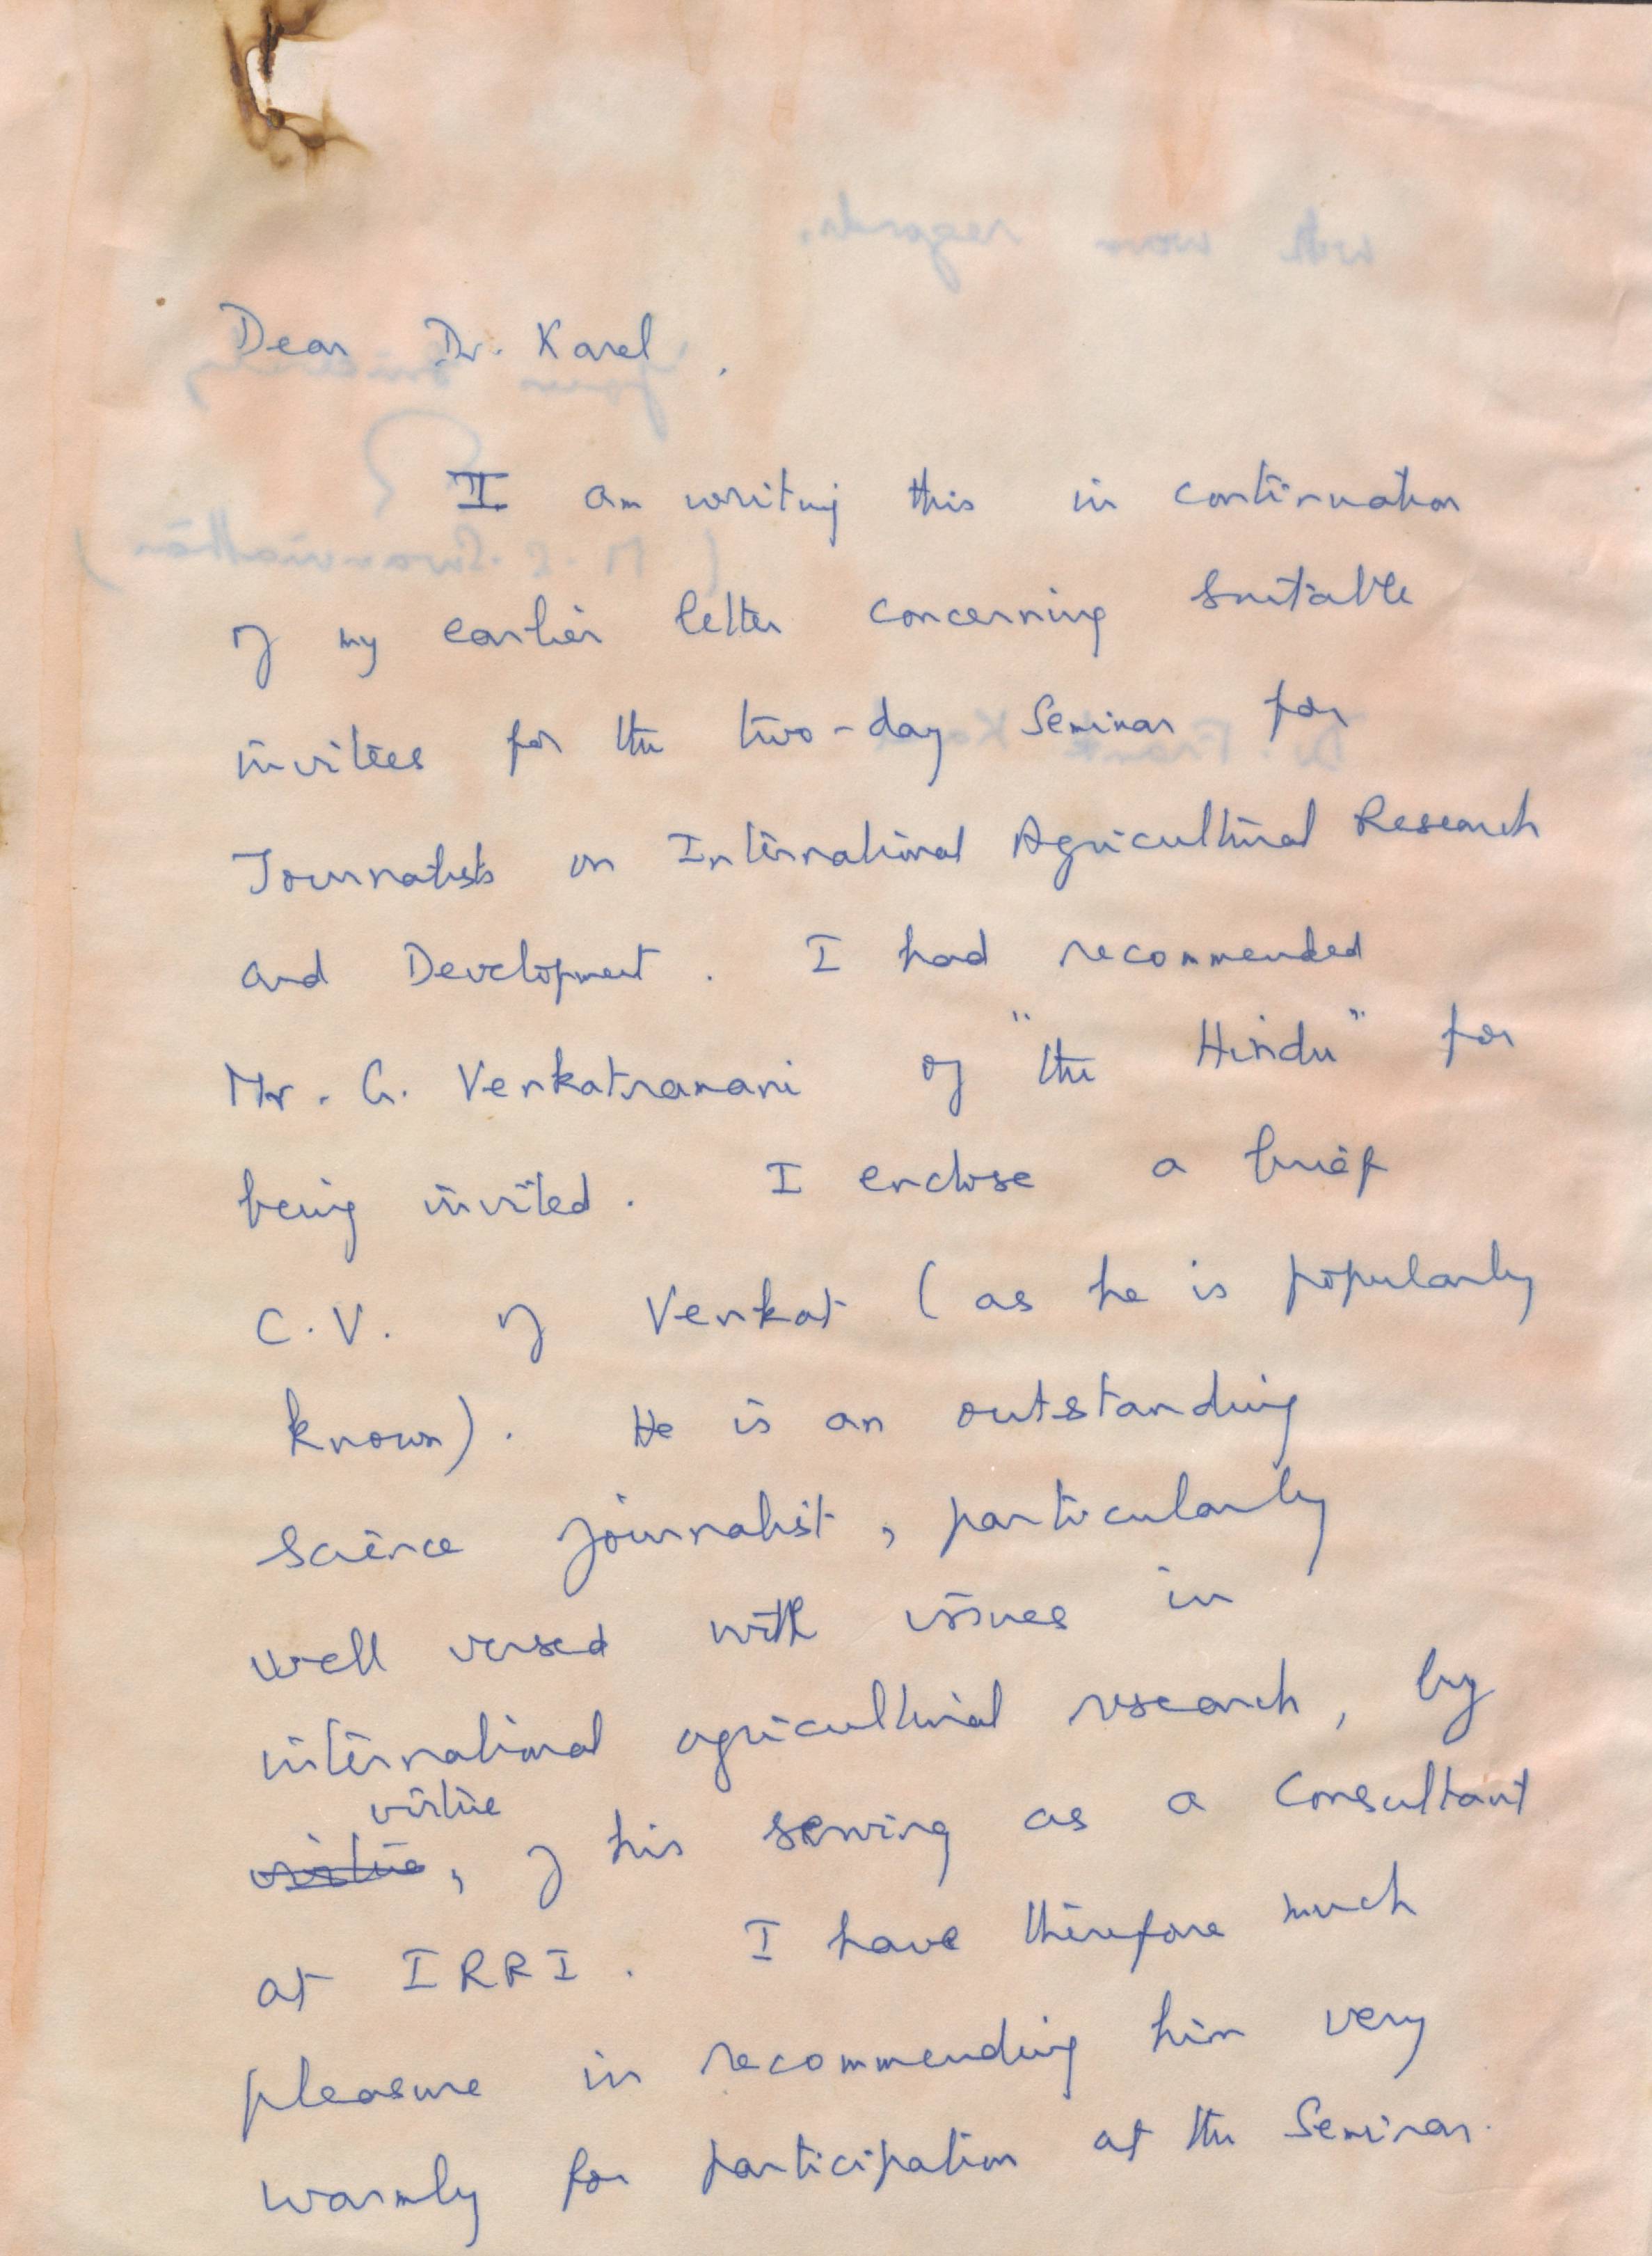 Dear Dr. Karel,
I am writing this in continuation
of my earlier letter concerning suitable
invitees for the two-day Seminar for
Journalists on International Agricultural Research
and Development. I had recommended
Mr. G. Venkatramani of "the Hindu" for
being invited. I enclose a brief
C.V. of Venkat (as he is popularly
known). He is an outstanding
science journalist, particularly
well versed with issues in
international agricultural research, by
virtue
virtue, of his serving as a Consultant
at IRRI. I have therefore much
pleasure in recommending him very
warmly for participation at the Seminar.
with warm regards,
Yours sincerely
(M.S. Swaminathan)